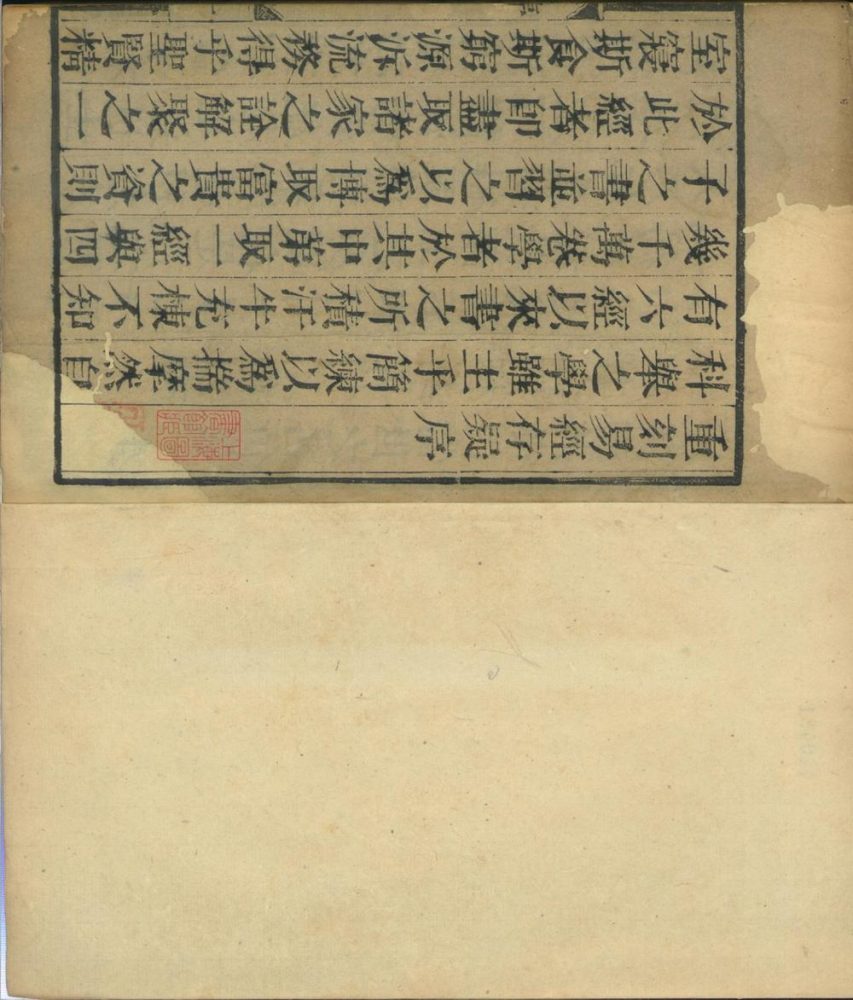 重刻易經存疑序
科舉之學雖主乎簡練以爲揣摩然自
有六經以來書之所積汗牛充棟不知
幾千萬卷學者於其中第取一經與四
子之書並習之以爲博取富貴之資則
於此經者卽盡取諸家之詮解聚之一
室寢斯食斯窮源泝流務得乎聖賢精
上海圖書館藏